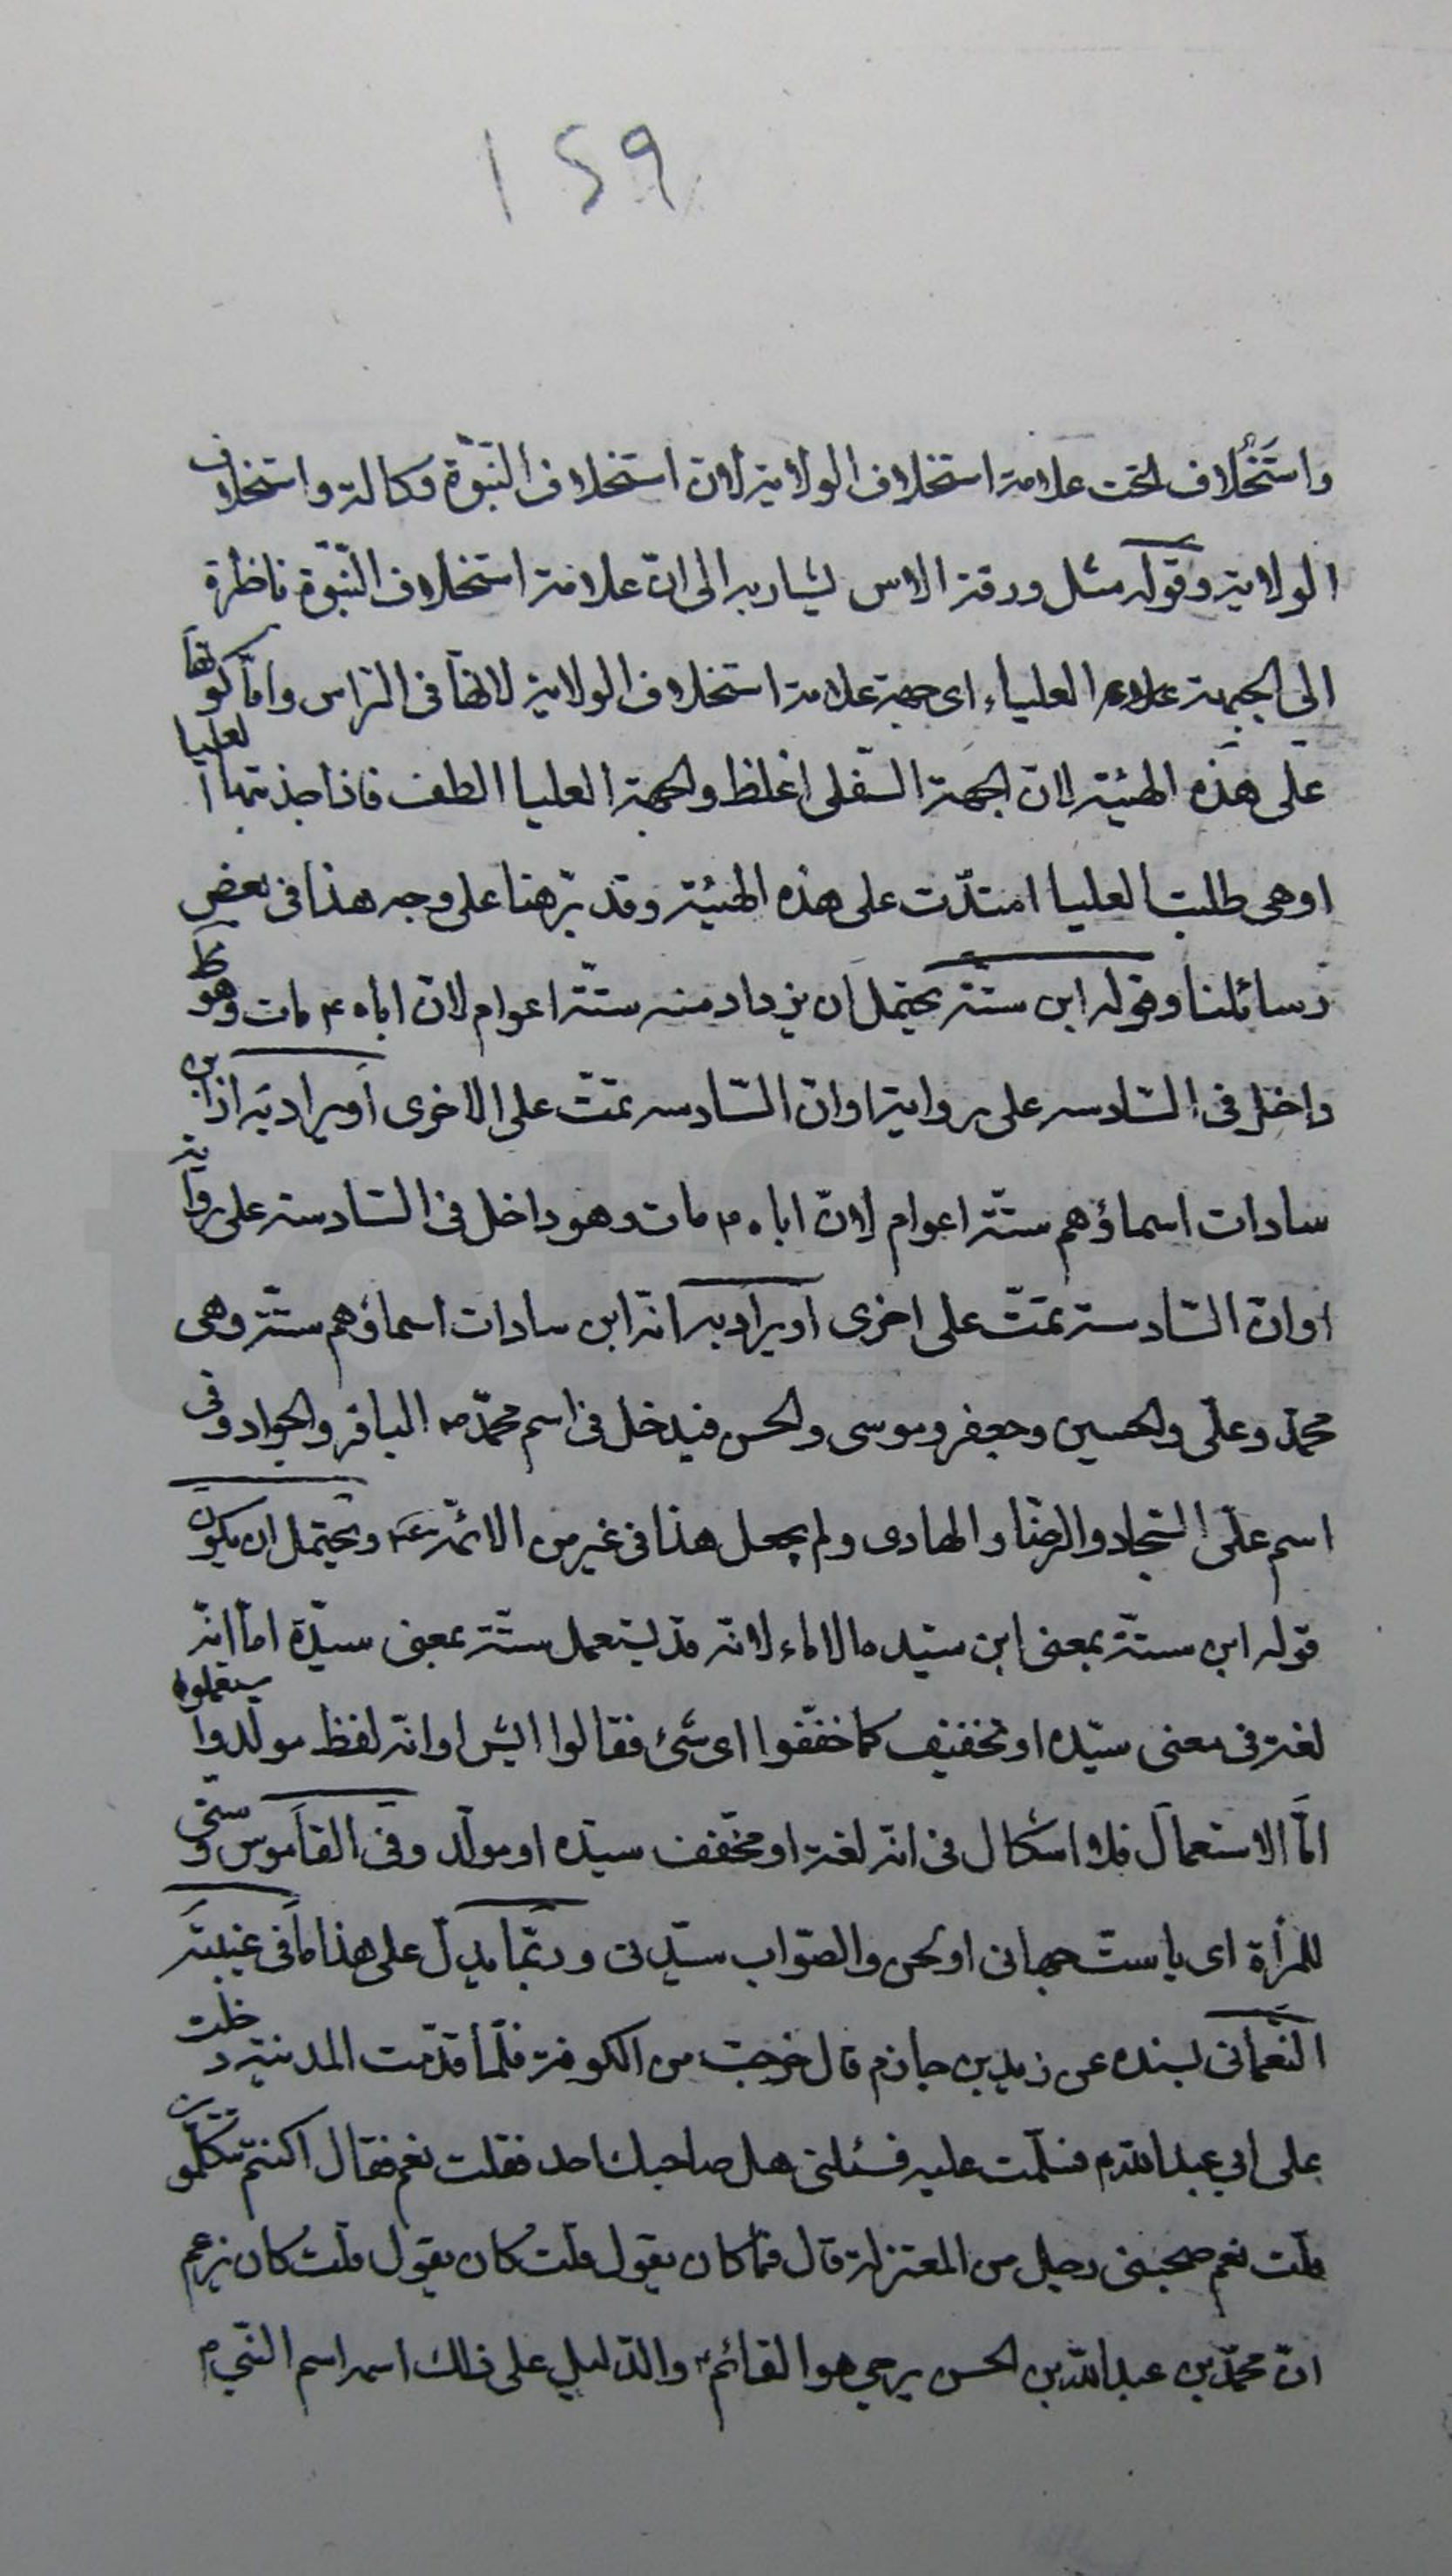 ١٢٩
واستخلاف لحتت علامة استخلاف الولاية لان استخلاف النبّوة وكالة واستخلاف
الولاية وقوله مثل ورقة الاس يشار به الى انّ علامة استخلاف النّبوّة ناظرة
الى الجهة العلياء اى جهة علامة استخلاف الولاية لانها فى الراس وامّا كونها
على هذه الهيئة لانّ الجهة السّفلى اغلظ والجهة العليا الطف فاذا جذبتها العليا
او هى طلبت العليا امتدّت على هذه الهيئة وقد برّهنا على وجه هذا فى بعض
رسائلنا وقوله ابن ستّة يحتمل ان يزداد منه ستّة اعوام لانّ اباه ع مات وهو
داخل فى السّادسه على رواية او انّ السّادسه تمّت على الاخرى او يراد به انه ابن
سادات اسماؤهم ستّة اعوام لانّ اباه ع مات وهو داخل فى السّادسة على رواية
او انّ السّادسة تمّت على اخرى او يراد به انّه ابن سادات اسماؤهم ستّة وهى
محمّد وعلىّ والحسين وجعفر وموسى والحسن فيدخل فى اسم محمّد ص الباقر والجواد وفى
اسم علىّ السّجاد والرضّا والهادى ولم يجعل هذا فى غير من الائمّة ع ويحتمل ان يكون
قوله ابن ستّة بمعنى ابن سيّده الاماء لانّه قد يستعمل ستّة بمعنى سيّدة امّا انّه
لغة فى معنى سيّده او تخفيف كما خفّفوا اى شئ فقالوا ايش او انّه لفظ مولّد واستعملوه
امّا الاستعمال فلا اشكال فى انّه لغة او مخّفف سيّده او مولّد وفى القاموس وستى
للمرأة اى يا ستّ جهاتى او لحن والصّواب سيّدتى وربّما يدلّ على هذا ما فى غيبة
النّعمانى بسنده عن زيد بن حازم قال خرجت من الكوفة فلمّا قدّمت المدينة دخلت
على ابي عبد الله ع فسلّمت عليه فسئلنى هل صاحبك احد فقلت نعم فقال اكنتم تتكلّمون
قلت نعم صحبنى رجل من المعتزلة قال فما كان يقول قلت كان يقول قلت كان يزعم
انّ محمّد بن عبد الله بن الحسن يرجى هو القائم والدّليل على ذلك اسمه اسم النّبي ص